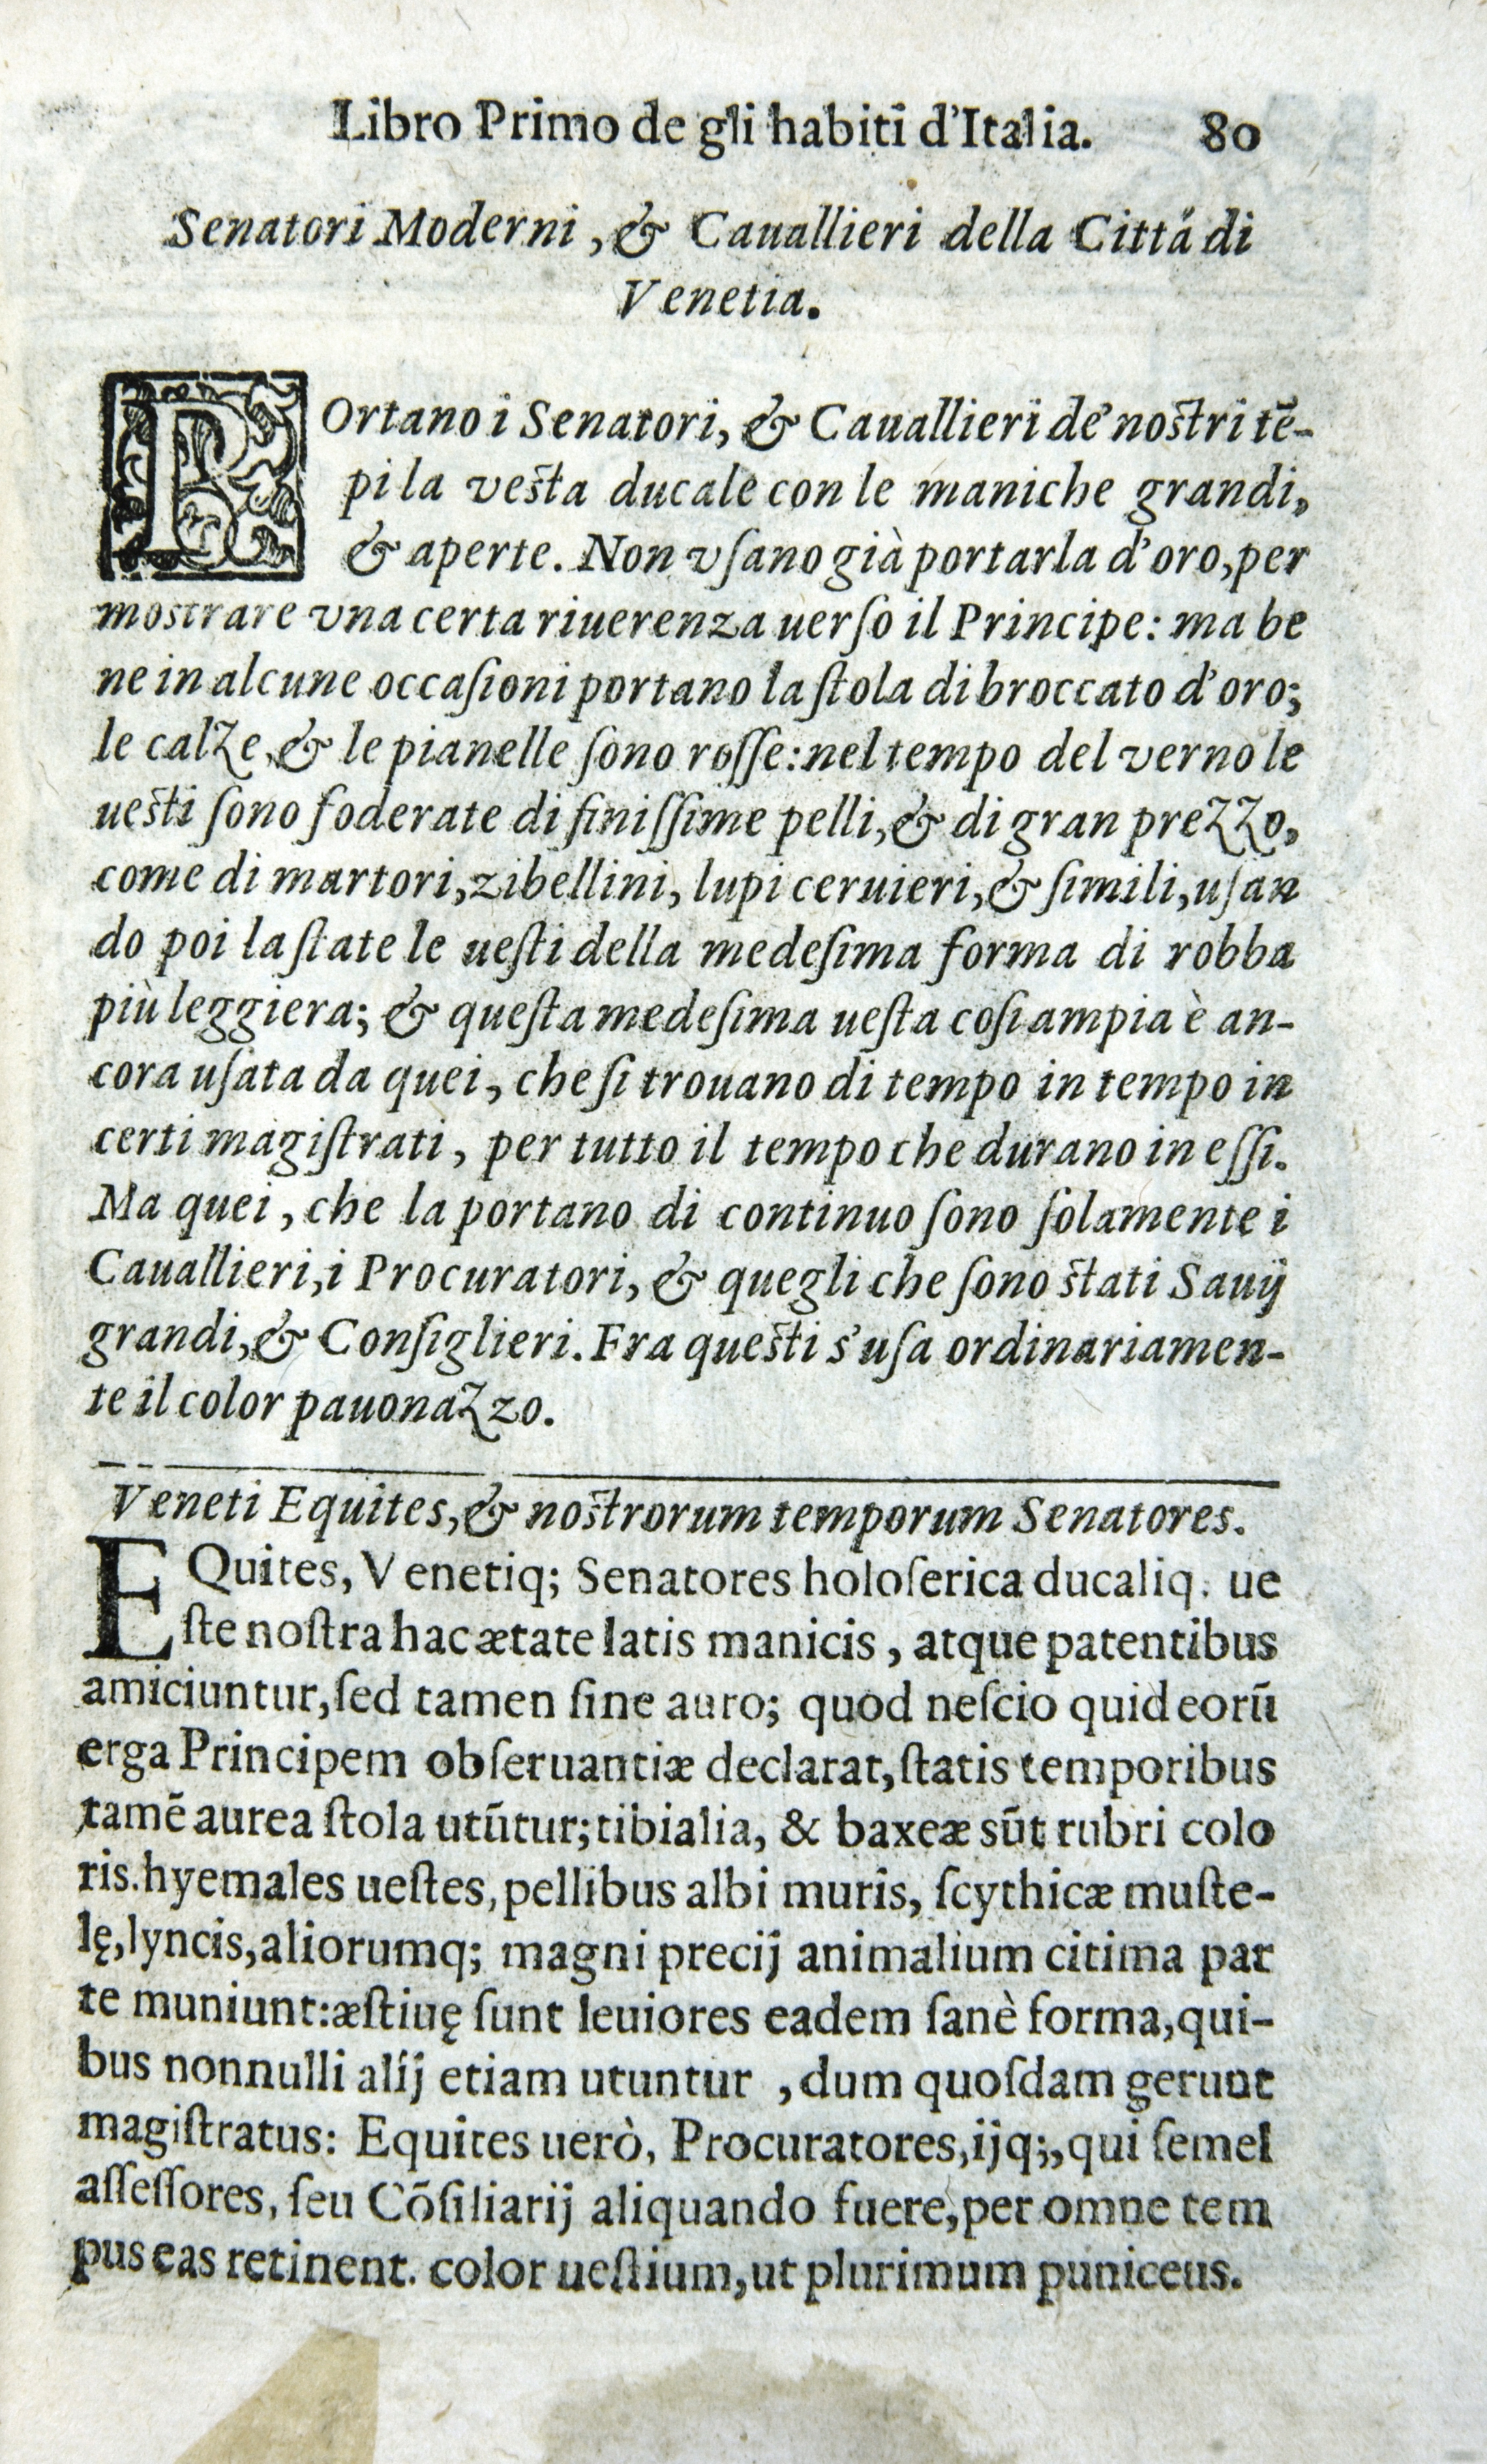 Libro Primo de gli habiti d'Italia. 80
Senatori Moderni, & Cauallieri della Cittá di
Venetia.
POrtano i Senatori, & Cauallieri de' nostri tē-
pi la vesta ducale con le maniche grandi,
& aperte. Non vſano già portarla d'oro, per
mostrare vna certa riuerenza uerſo il Principe: ma be
ne in alcune occaſioni portano la ſtola di broccato d'oro;
le calze, & le pianelle ſono roſſe: nel tempo del verno le
uesti ſono foderate di finiſſime pelli, & di gran prezzo,
come di martori, zibellini, lupi ceruieri, & ſimili, uſan
do poi la ſtate le ueſti della medeſima forma di robba
più leggiera; & queſta medeſima ueſta coſi ampia è an-
cora uſata da quei, che ſi trouano di tempo in tempo in
certi magiſtrati, per tutto il tempo che durano in eſſi.
Ma quei, che la portano di continuo ſono ſolamente i
Cauallieri, i Procuratori, & quegli che ſono stati Sauij
grandi, & Conſiglieri. Fra questi s'uſa ordinariamen-
te il color pauonazzo.
Veneti Equites, & nostrorum temporum Senatores.
EQuites, Venetiq; Senatores holoſerica ducaliq. ue
ſte noſtra hac ætate latis manicis, atque patentibus
amiciuntur, ſed tamen ſine auro; quod neſcio quid eorū
erga Principem obſeruantiæ declarat, ſtatis temporibus
tamē aurea ſtola utūtur; tibialia, & baxeæ sūt rubri colo
ris. hyemales ueſtes, pellibus albi muris, ſcythicæ muſte-
lę, lyncis, aliorumq; magni precij animalium citima par
te muniunt: æſtiuę ſunt leuiores eadem ſanè forma, qui-
bus nonnulli alij etiam utuntur, dum quoſdam gerunt
magiſtratus: Equites uerò, Procuratores, ijq;, qui ſemel
aſſeſſores, ſeu Cōſiliarij aliquando fuere, per omne tem
pus eas retinent. color ueſtium, ut plurimum puniceus.